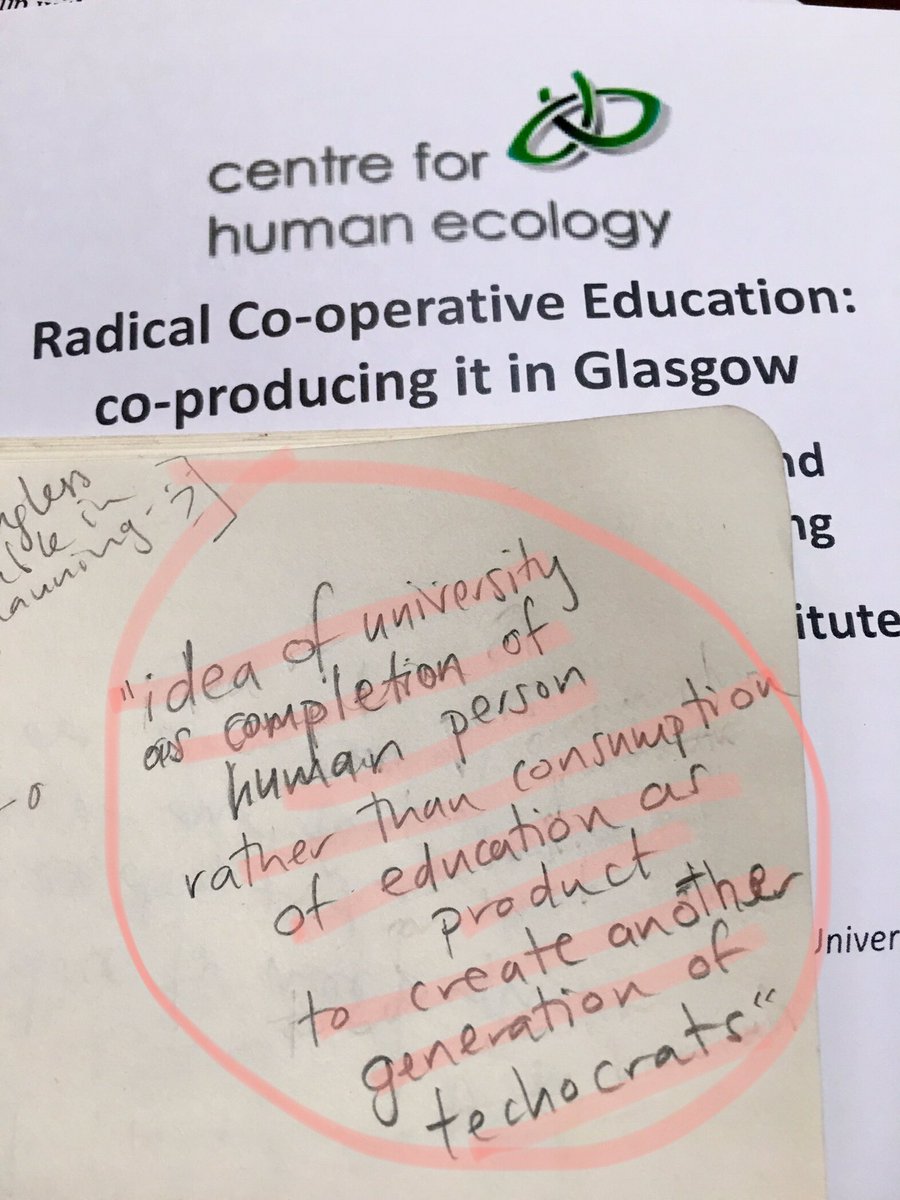 centre for
human ecology
Radical Co-operative Education:
co-producing it in Glasgow
nd
ng
itute
Univer
"idea of university
as completion of
human person
rather than consumption
of education as
product
to create another
generation of
techocrats"